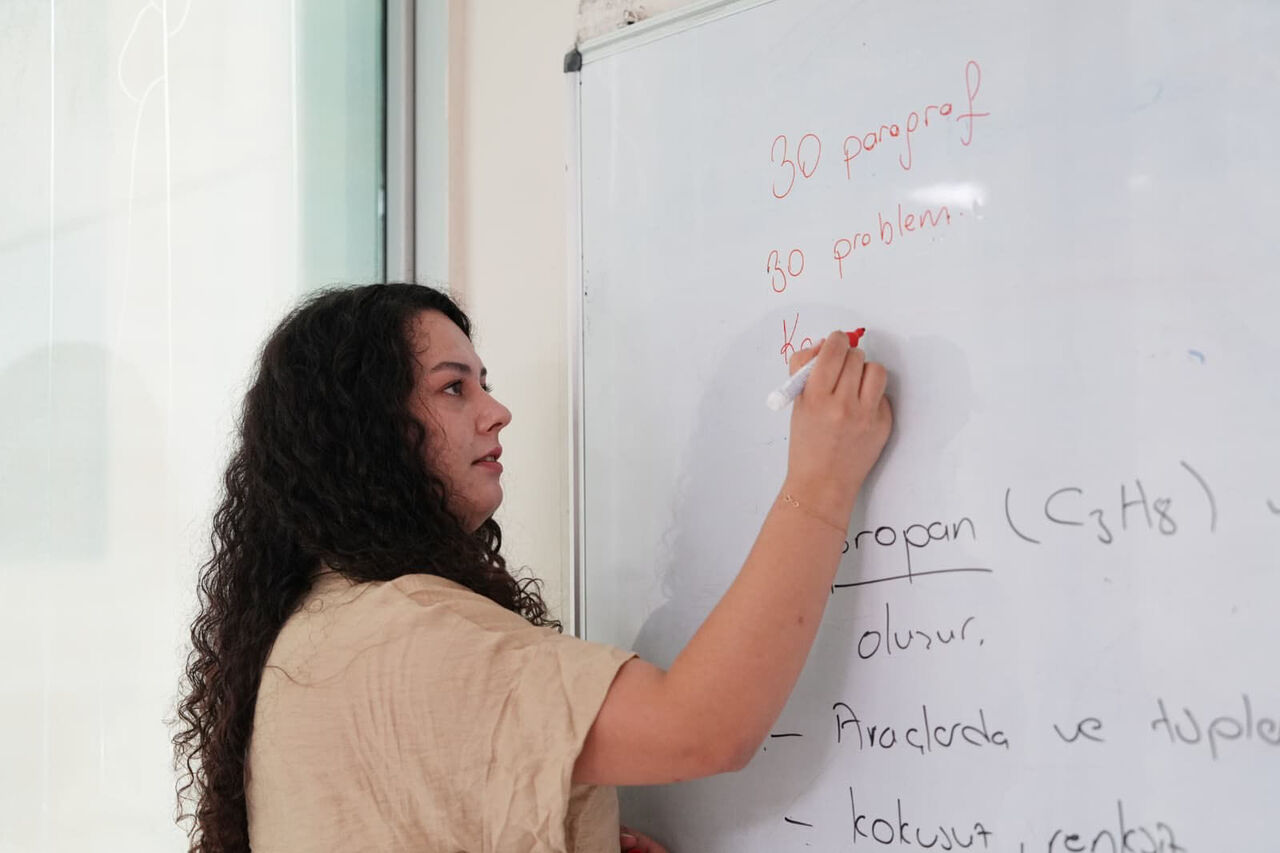 30 paragraf
30 problem.
propan (C3H8)
oluşur.
- Araçlarda ve
- kokusuz, renksiz